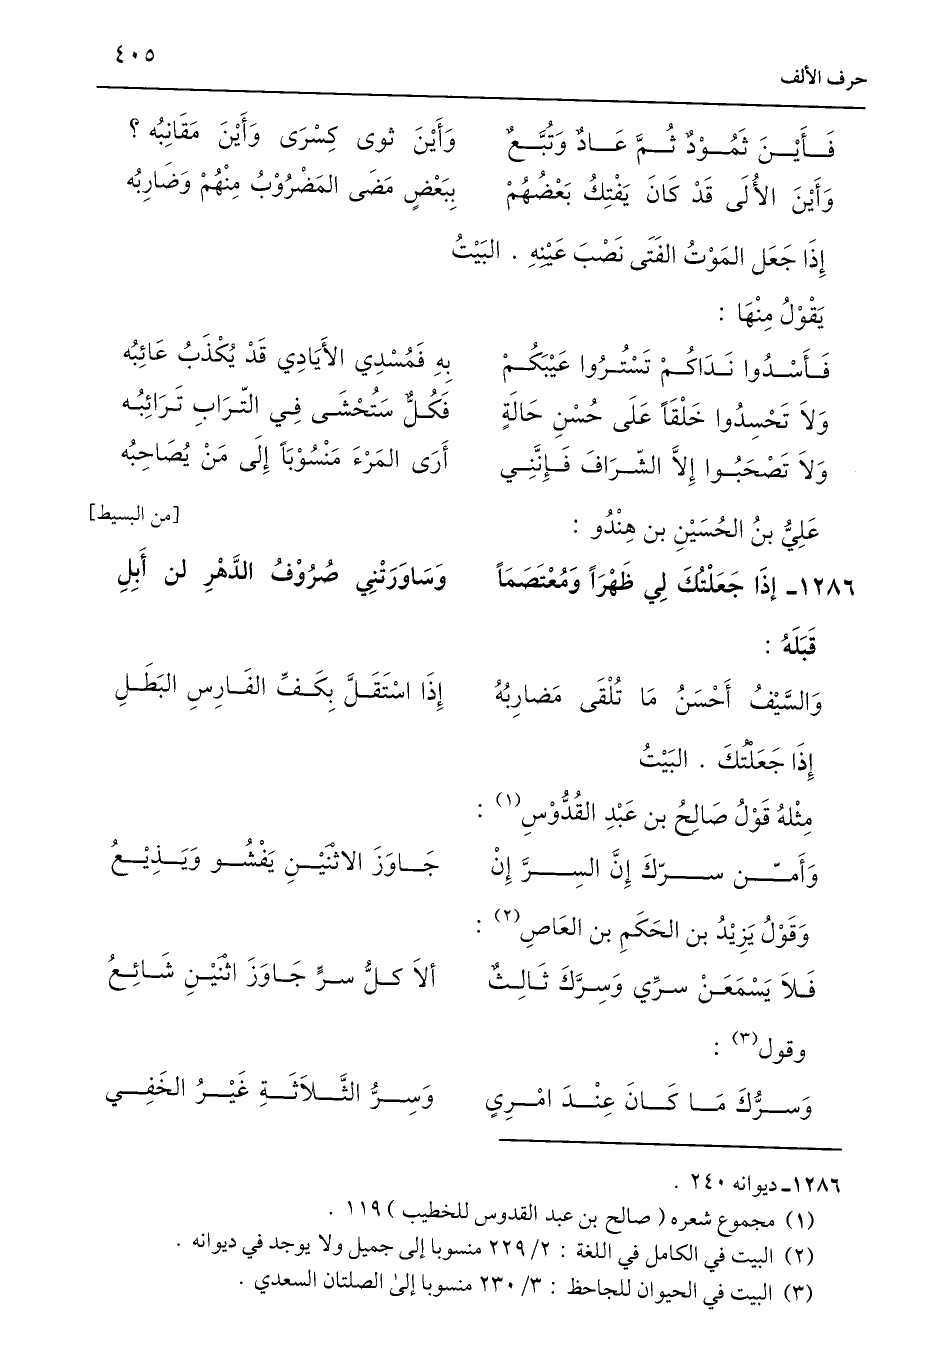 ٤٠٥
حرف الألف
فَأَيْنَ ثَمُوْدٌ ثُمَّ عَادٌ وَتُبَّعٌ وَأَيْنَ ثوى كِسْرَى وَأَيْنَ مَقَانِبُه ؟
وَأَيْنَ الأُلَى قَدْ كَانَ يَفْتِكُ بَعْضُهُمْ بِبَعْضٍ مَضَى المَضْرُوْبُ مِنْهُمْ وَضَارِبُه
إِذَا جَعَلَ المَوْتُ الفَتَى نَصْبَ عَيْنِهِ . البَيْتُ
يَقْوْلُ مِنْهَا :
فَأَسْدُوا نَدَاكُمْ تَسْتُرُوا عَيْبَكُمْ بِهِ فَمُسْدِي الأَيَادِي قَدْ يُكْذَبُ عَائِبُه
وَلاَ تَحْسِدُوا خَلْقَاً عَلَى حُسْنِ حَالَةٍ فَكُلٌّ سَتُحْشَى فِي التّرَابِ تَرَائِبُه
وَلاَ تَصْحَبُوا إِلاَّ الشّرَافَ فَإِنَّنِي أَرَى المَرْءَ مَنْسُوْبَاً إِلَى مَنْ يُصَاحِبُه
عَلِيُّ بنُ الحُسَيْنِ بن هِنْدُو : [من البسيط]
١٢٨٦ـ إِذَا جَعَلْتُكَ لِي ظَهْرَاً وَمُعْتَصَمَاً وَسَاوَرَتْنِي صُرُوْفُ الدَّهْرِ لن أَبلِ
قَبلَهُ :
وَالسَّيْفُ أَحْسَنُ مَا تُلْقَى مَضاربُهُ إِذَا اسْتَقَلَّ بِكَفِّ الفَارِسِ البَطَلِ
إِذَا جَعَلْتُكَ . البَيْتُ
مِثْلهُ قَوْلُ صَالِحُ بن عَبْدِ القُدُّوْسِ(١) :
وَأَمّن سرّكَ إِنَّ السِرَّ إِنْ جَاوَزَ الاثْنَيْنِ يَفْشُو وَيَذِيْعُ
وَقَوْلُ يَزِيْدُ بن الحَكَمِ بن العَاصِ(٢) :
فَلاَ يَسْمَعَنْ سرِّي وَسِرَّكَ ثَالِثٌ ألاَ كلُّ سرٍّ جَاوَزَ اثْنَيْنِ شَائِعُ
وقول(٣) :
وَسرُّكَ مَا كَانَ عِنْدَ امْرِيٍ وَسِرُّ الثَّلاَثَةِ غَيْرُ الخَفِي
١٢٨٦ـ ديوانه ٢٤٠ .
(١) مجموع شعره ( صالح بن عبد القدوس للخطيب ) ١١٩ .
(٢) البيت في الكامل في اللغة : ٢/ ٢٢٩ منسوبا إلى جميل ولا يوجد في ديوانه .
(٣) البيت في الحيوان للجاحظ : ٣/ ٢٣٠ منسوبا إلى الصلتان السعدي .